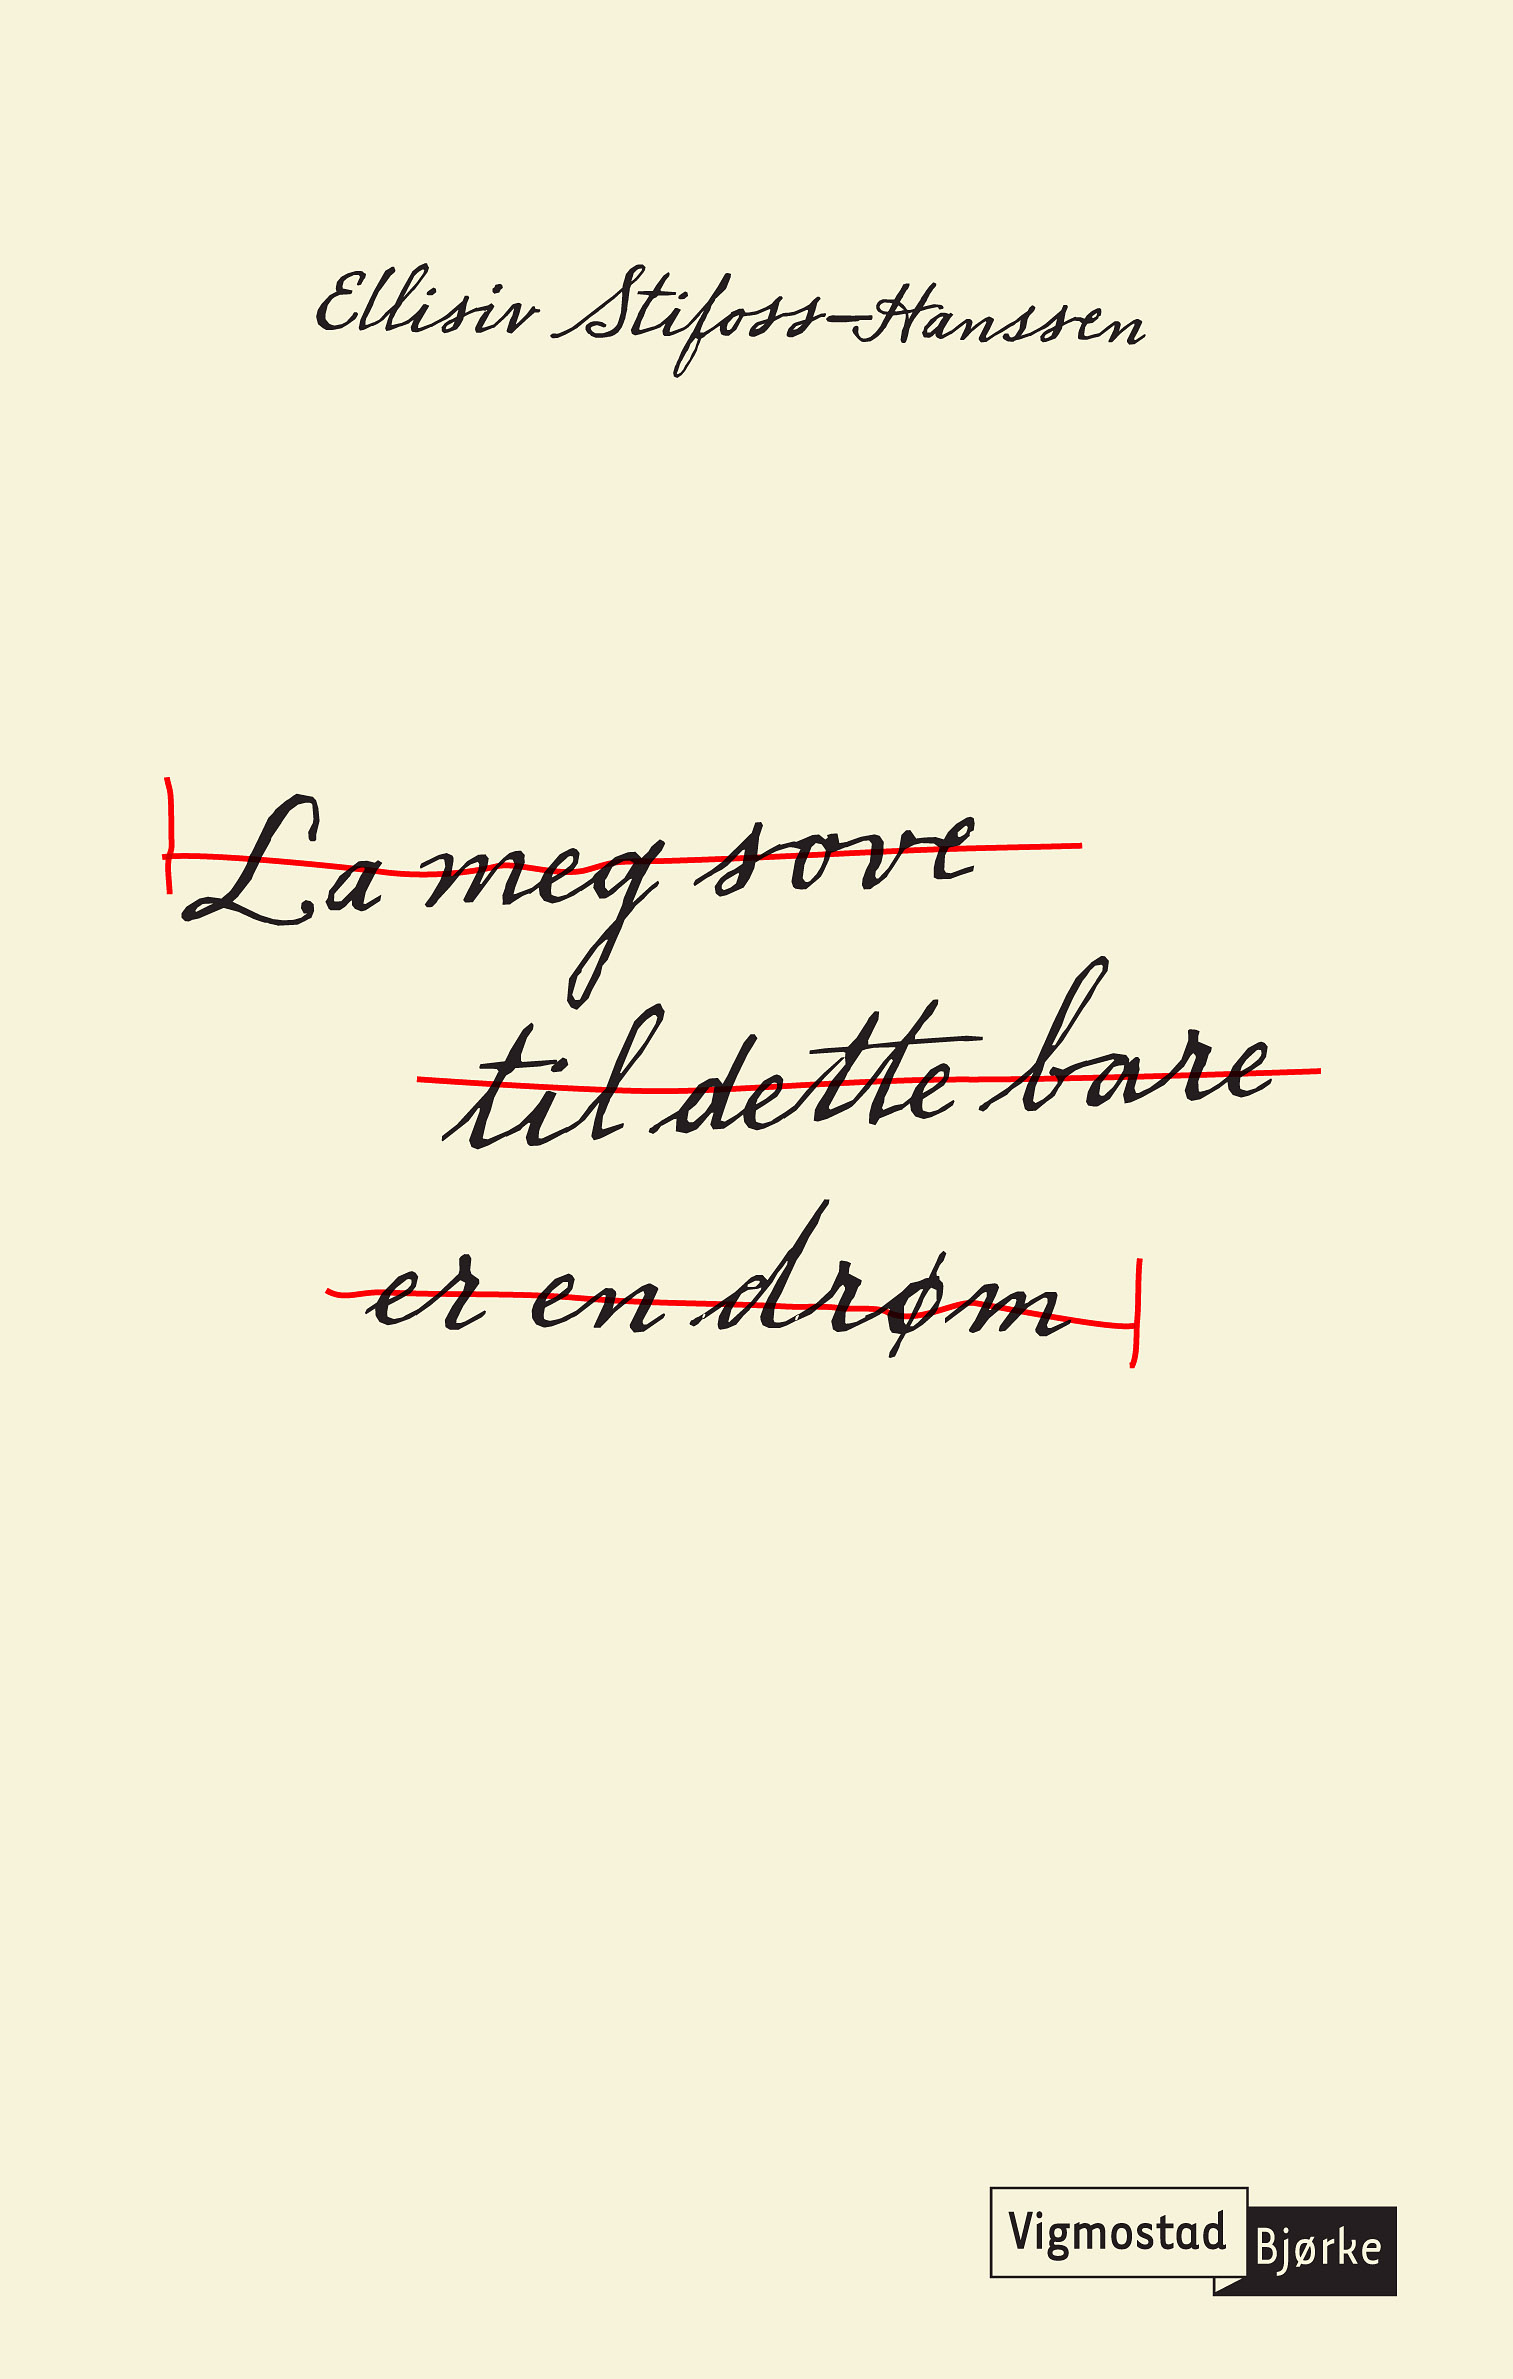 Ellisiv Stifoss-Hanssen
La meg sove
til dette bare
er en drøm
Vigmostad
Bjørke